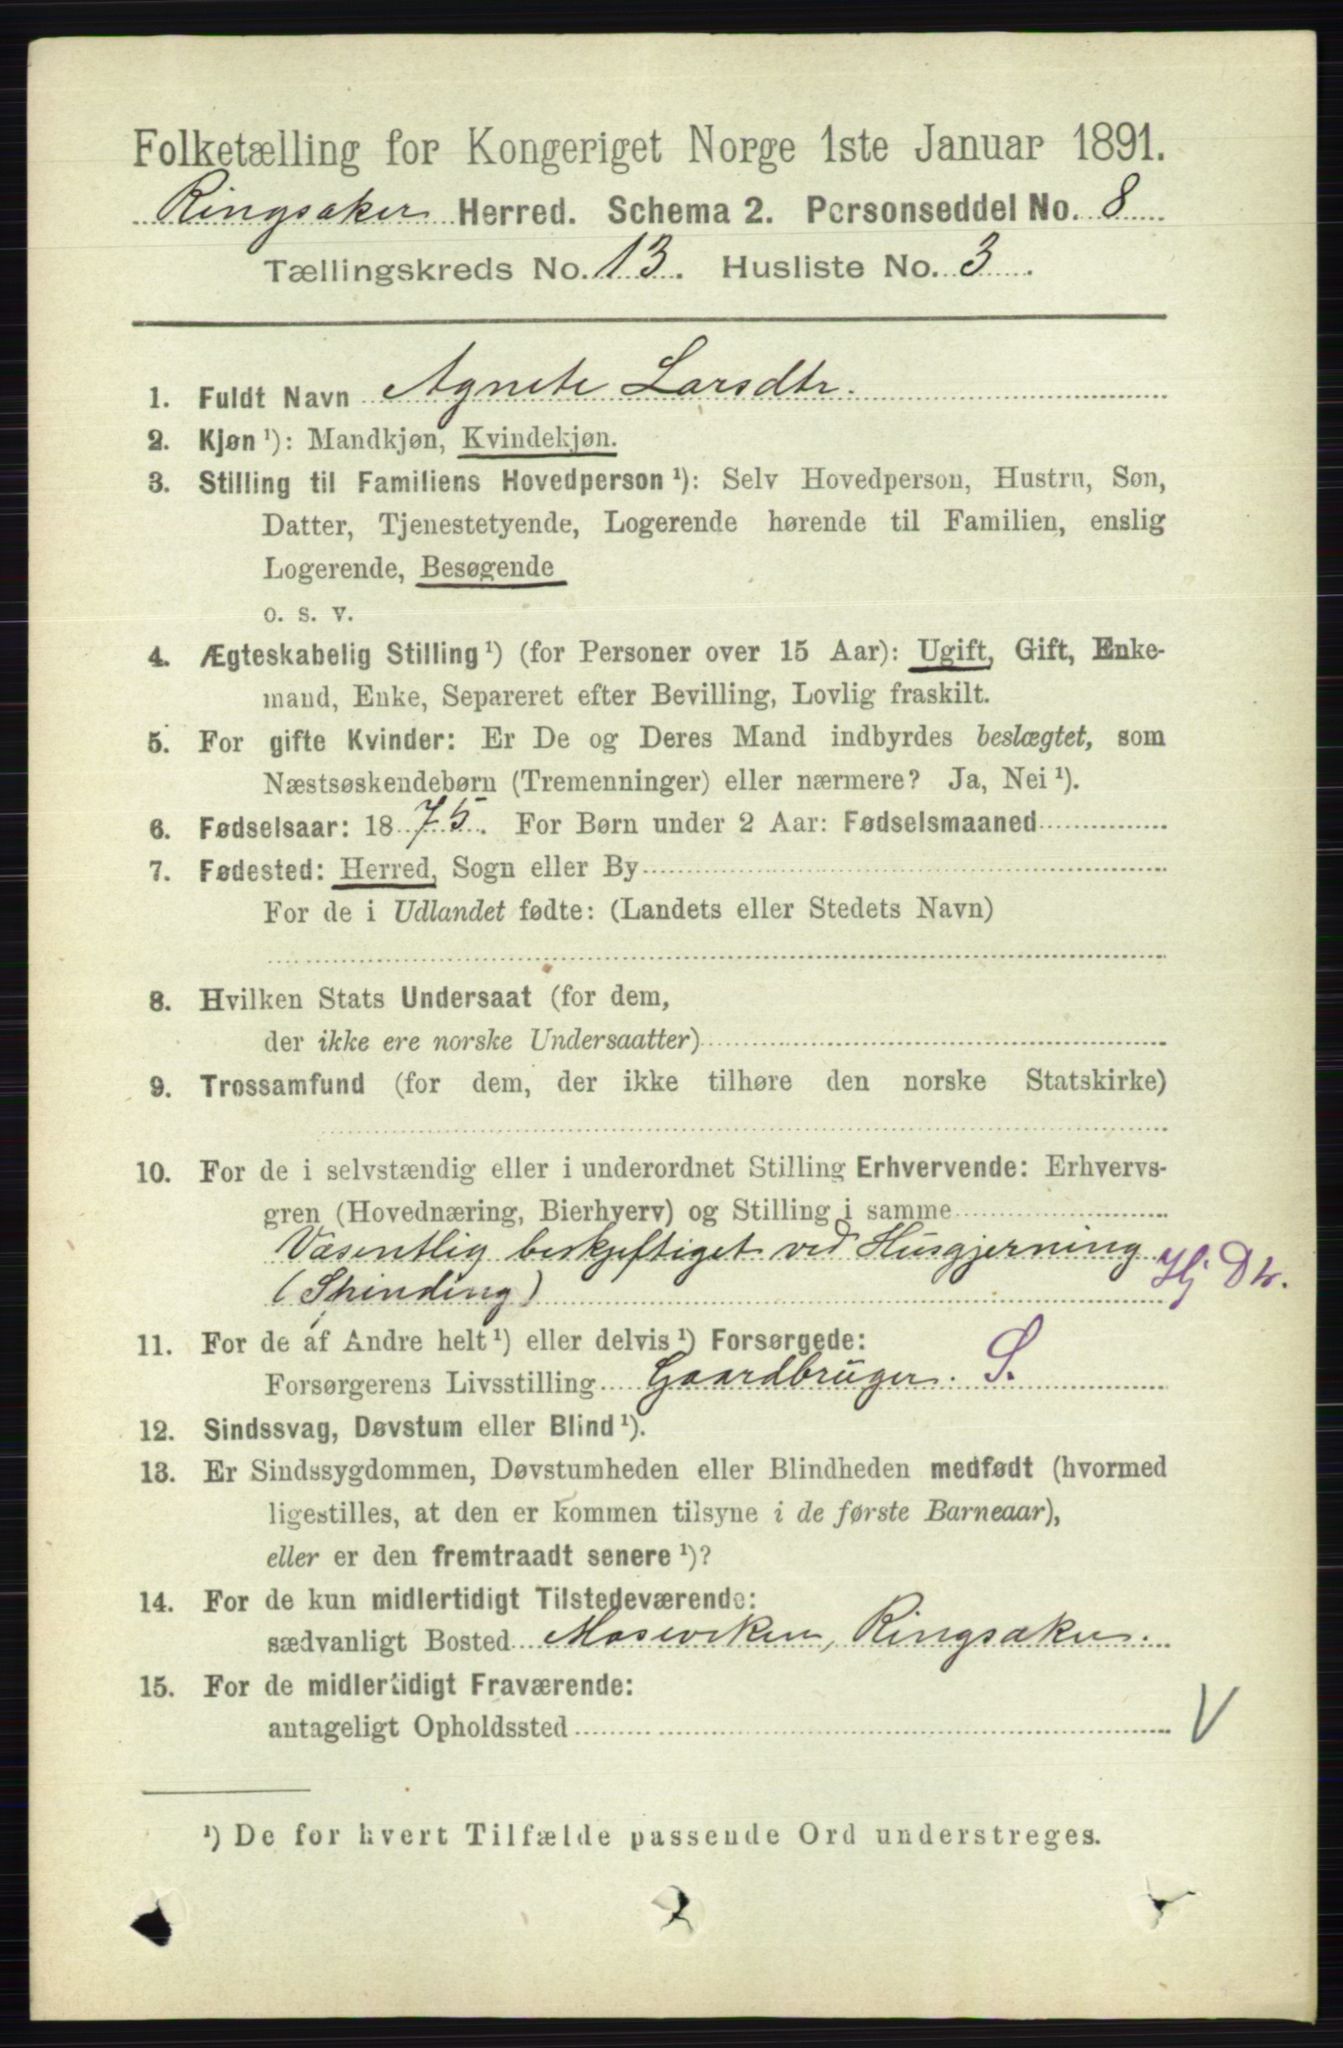 Folketælling for Kongeriget Norge 1ste Januar 1891.
Ringsaker Herred. Schema 2. Personseddel No. 8
Tællingskreds No. 13. Husliste No. 3
1. Fuldt Navn Agnete Larsdtr.
2. Kjøn ¹): Mandkjøn, Kvindekjøn.
3. Stilling til Familiens Hovedperson ¹): Selv Hovedperson, Hustru, Søn,
Datter, Tjenestetyende, Logerende hørende til Familien, enslig
Logerende, Besøgende
o. s. v.
4. Ægteskabelig Stilling ¹) (for Personer over 15 Aar): Ugift, Gift, Enke-
mand, Enke, Separeret efter Bevilling, Lovlig fraskilt.
5. For gifte Kvinder: Er De og Deres Mand indbyrdes beslægtet, som
Næstsøskendebørn (Tremenninger) eller nærmere? Ja, Nei ¹).
6. Fødselsaar: 1875. For Børn under 2 Aar: Fødselsmaaned
7. Fødested: Herred, Sogn eller By
For de i Udlandet fødte: (Landets eller Stedets Navn)
8. Hvilken Stats Undersaat (for dem,
der ikke ere norske Undersaatter)
9. Trossamfund (for dem, der ikke tilhøre den norske Statskirke)
10. For de i selvstændig eller i underordnet Stilling Erhvervende: Erhvervs-
gren (Hovednæring, Bierhverv) og Stilling i samme
Væsentlig beskjeftiget ved Husgjerning
(Spinding) Hj Dtr.
11. For de af Andre helt ¹) eller delvis ¹) Forsørgede:
Forsørgerens Livsstilling Gaardbruger. S.
12. Sindssvag, Døvstum eller Blind ¹).
13. Er Sindssygdommen, Døvstumheden eller Blindheden medfødt (hvormed
ligestilles, at den er kommen tilsyne i de første Barneaar),
eller er den fremtraadt senere ¹)?
14. For de kun midlertidigt Tilstedeværende:
sædvanligt Bosted Moseviken, Ringsaker.
15. For de midlertidigt Fraværende:
antageligt Opholdssted V
¹) De for hvert Tilfælde passende Ord understreges.